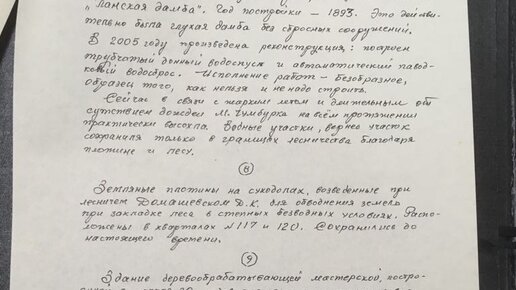 "Панская дамба". Год постройки – 1893. Это действи-
тельно была глухая дамба без сбросных сооружений.
В 2005 году произведена реконструкция: построен
трубчатый донный водоспуск и автоматический павод-
ковый водосброс. Исполнение работ – безобразное,
образец того, как нельзя и не надо строить.
Сейчас в связи с жарким летом и длительным от
сутствием дождей М. Чумбурка на всём протяжении
практически высохла. Водные участки, вернее участок
сохранился только в границах лесничества благодаря
плотине и лесу.
8
Земляные плотины на суходолах, возведенные при
лесничем Домашевском Д.К. для обводнения земель
при закладке леса в степных безводных условиях. Распо-
ложены в кварталах №117 и 120. Сохранились до
настоящего времени.
9
Здание деревообрабатывающей мастерской, постро-